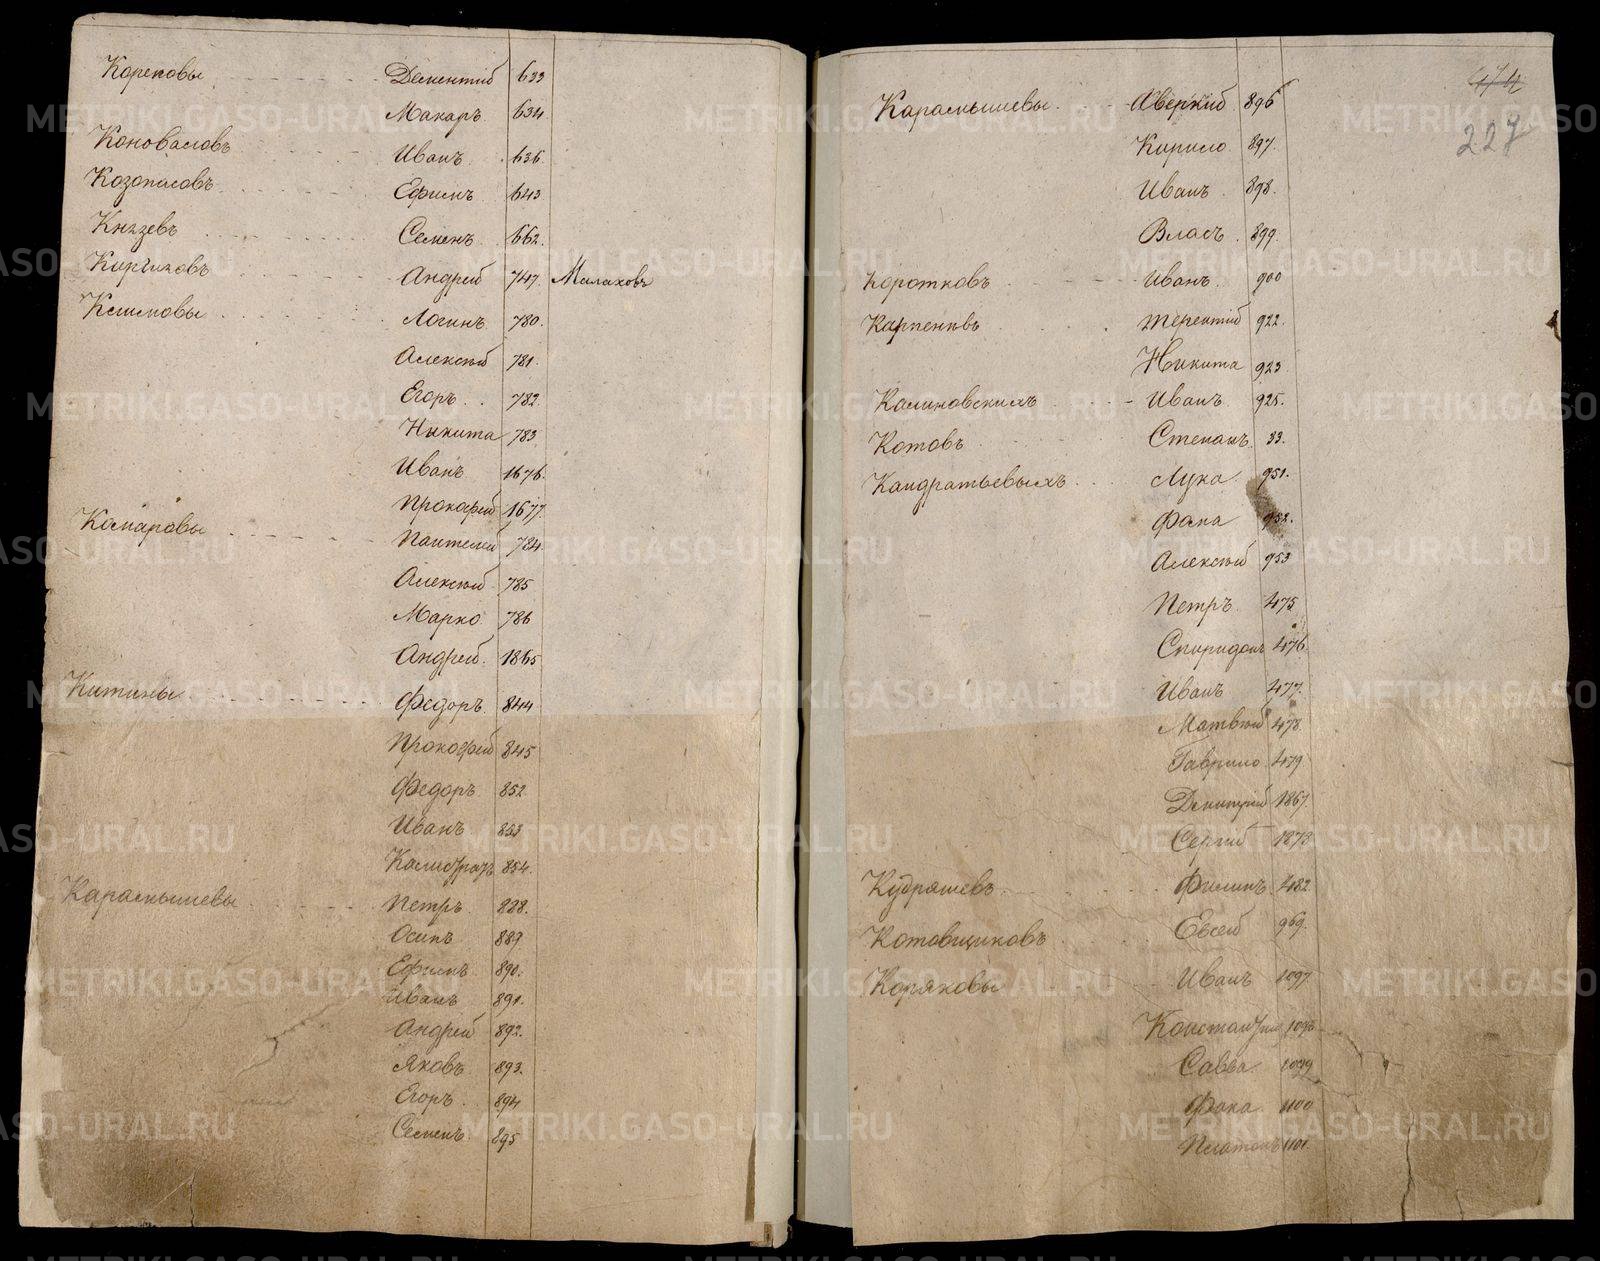 Кореповы Дементій 633
Макаръ 634
Коноваловъ Иванъ 636
Козопасовъ Ефимъ 643
Князевъ Семенъ 662.
Киргизовъ Андрей 747 Малаховъ
Климовы Логинъ 780.
Алексѣй 781.
Егоръ 782
Никита 783
Иванъ 1676.
Прокофей 1677
Комаровы Пантелей 784
Алексѣй 785
Марко 786
Андрей 1865
Китины Федоръ 844
Прокофей 845
Федоръ 852
Иванъ 853
854.
Карамышевы Петръ 888.
Осипъ 889
Ефимъ 890.
Иванъ 891.
Андрей 892.
Яковъ 893.
Егоръ 894
Семенъ 895
227
Карамышевы Аверкій 896
Кирило 897.
Иванъ 898.
Власъ 899.
Коротковъ Иванъ 900
Терентій 922.
Никита 923
Калиновскихъ Иванъ 925.
Котовъ Степанъ 33.
Кандратьевыхъ Лука 951.
Фока 952.
Алексѣй 953
Петръ 475
Спиридонъ 476
Иванъ 477.
Матвѣй 478
Гаврило 479
Дмитрій 1867
Сергій 1873
Кудряшевъ Филипъ 482
Котовщиковъ Евсей 969.
Коряковы Иванъ 1097
1098
Савва 1099
Фока 1100
Платонъ 1101